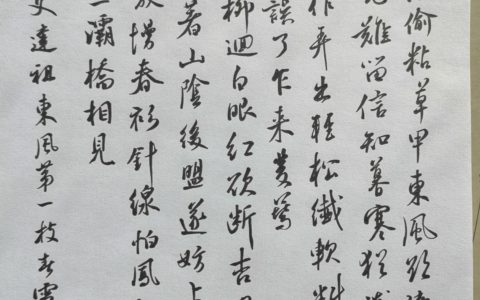 偷粘草甲東風欲
難留信知暮寒犹
作弄出輕松纖軟料
誤了乍来雙燕
柳迴白眼紅欲断杏
著山陰後盟遂妨上
放慢春衫針線怕鳳
一灞橋相見
史達祖東風第一枝春雪